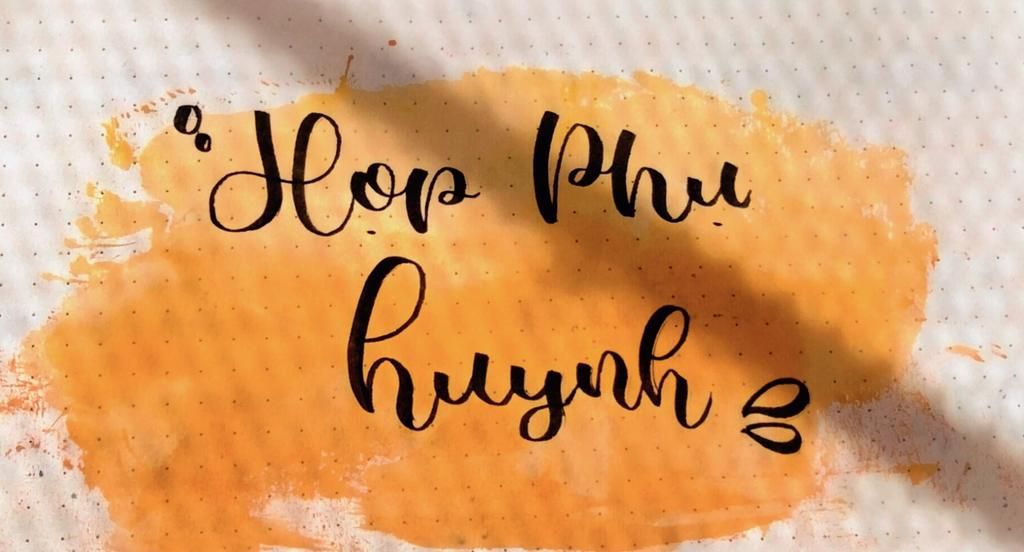 Họp Phụ
huynh